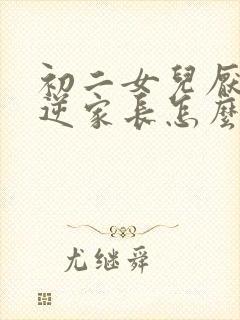 初二女兒厭
逆家長怎麼
尤继舜